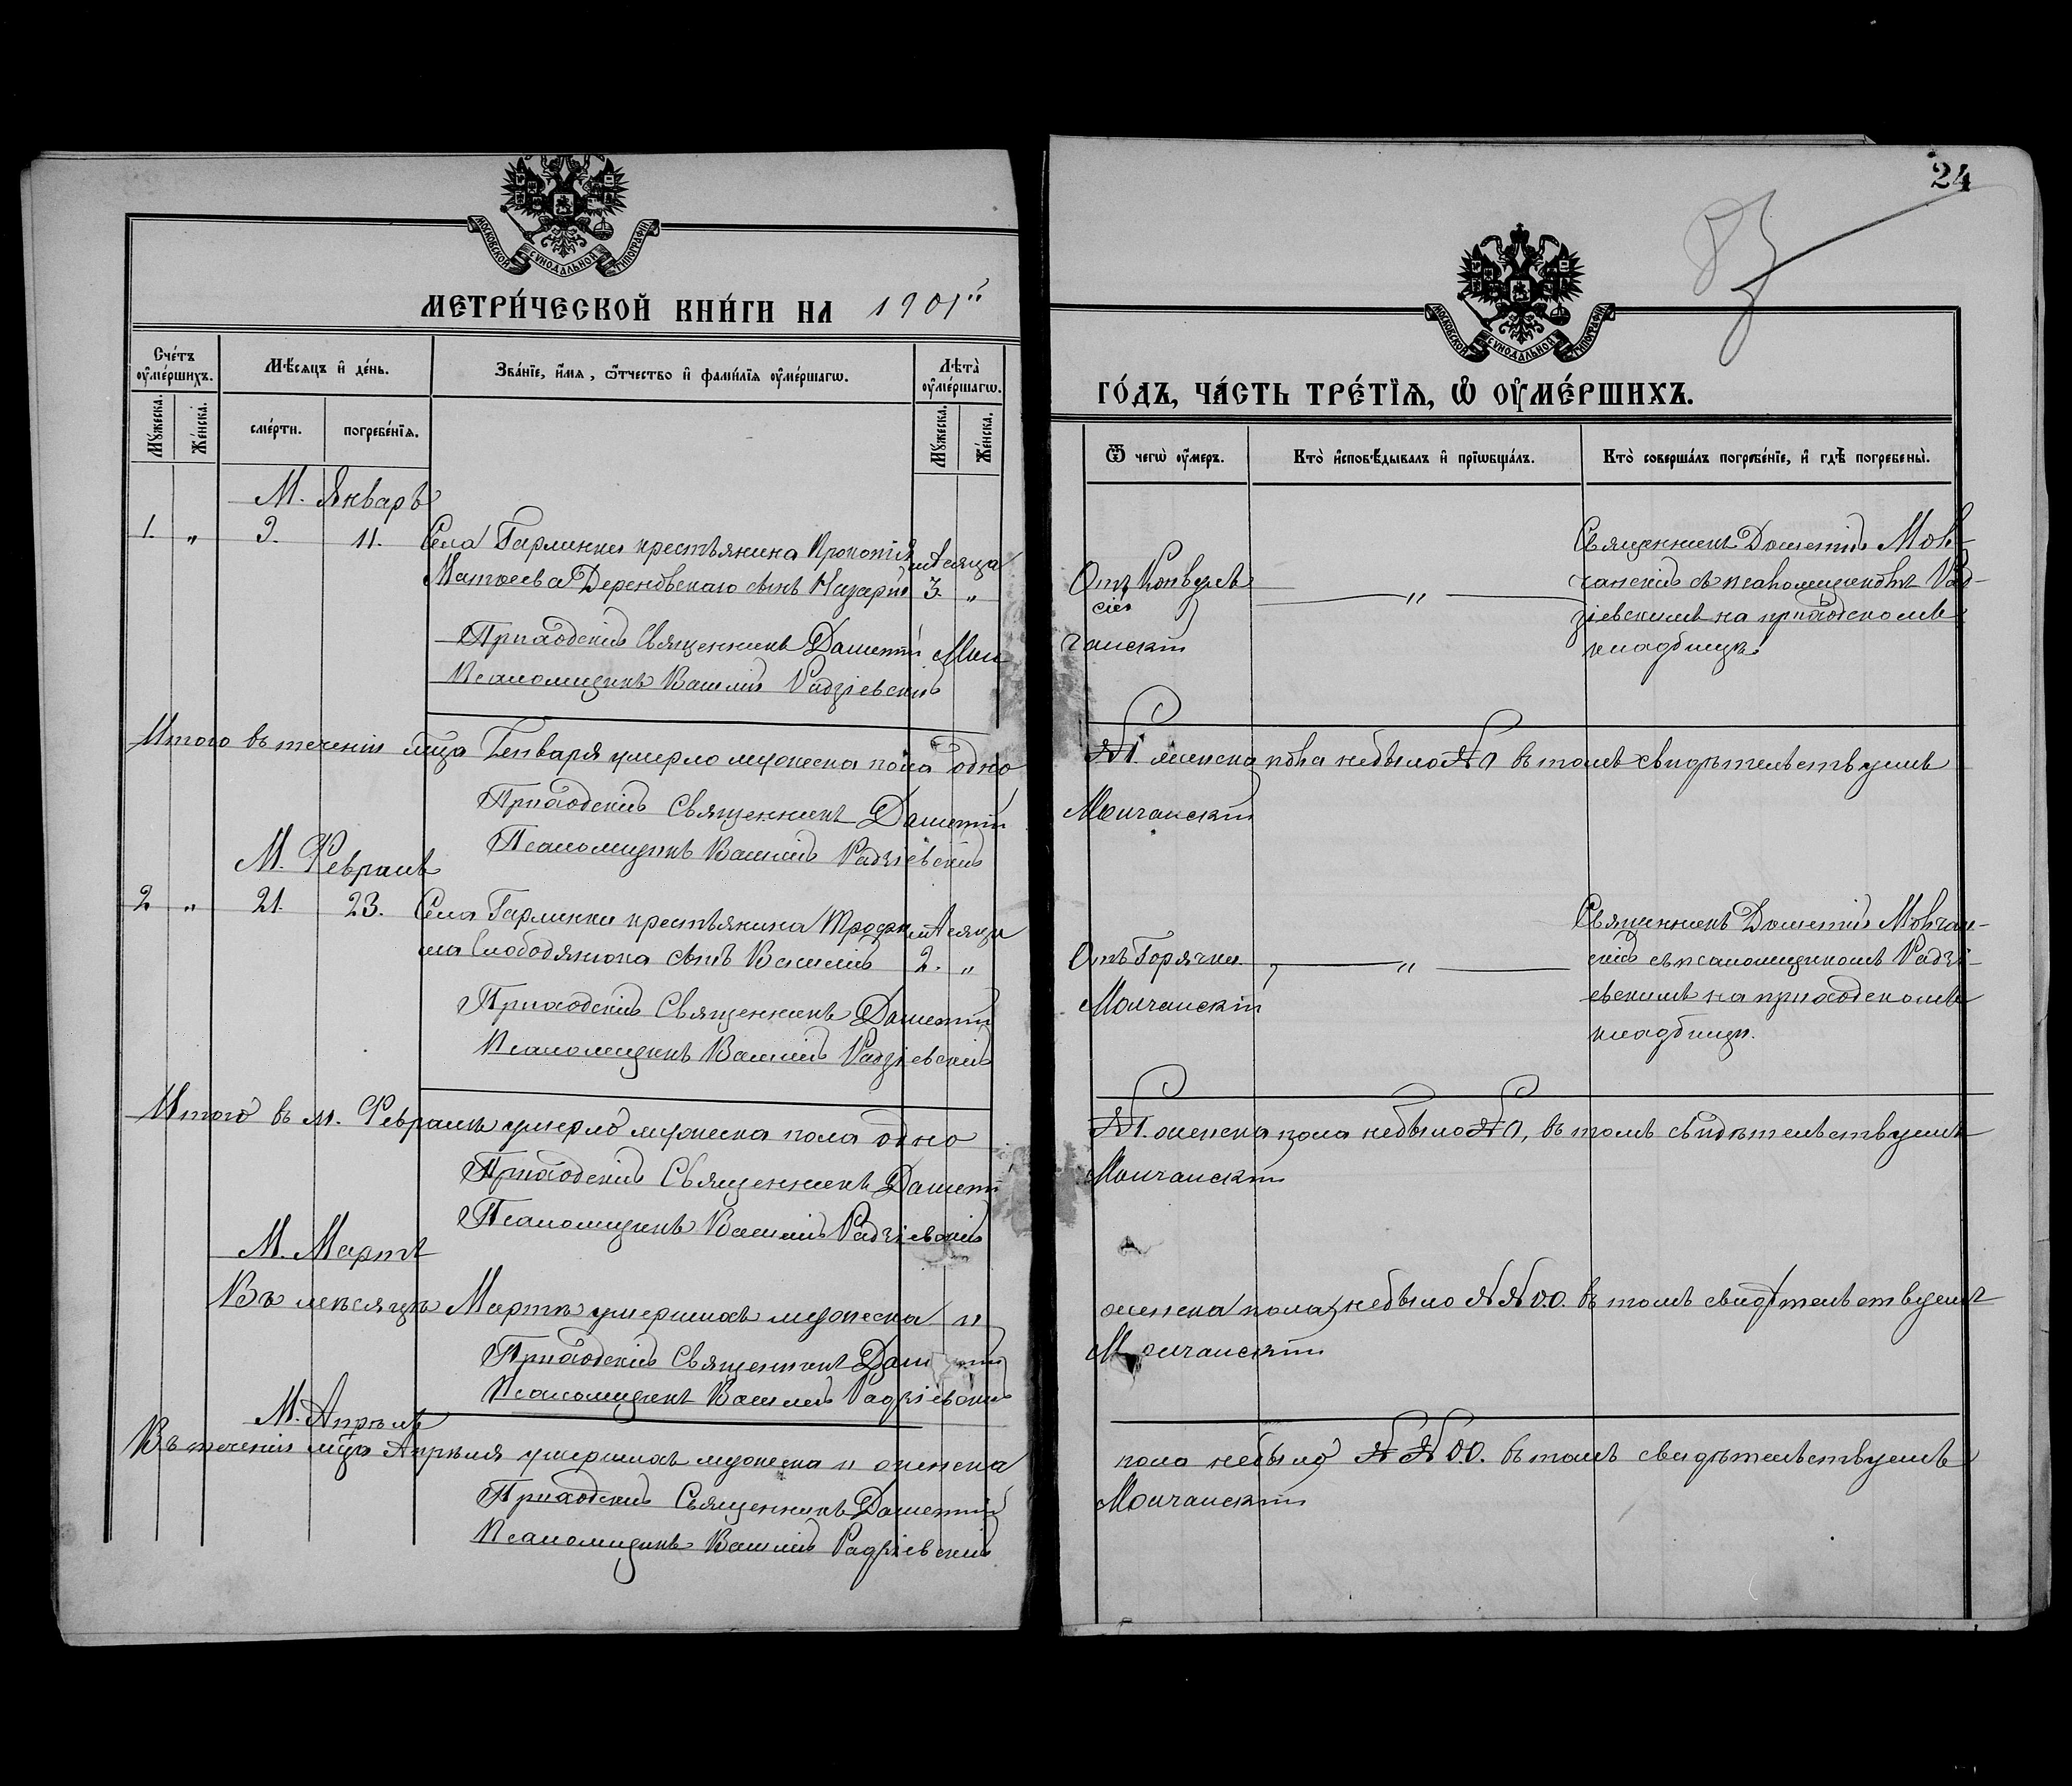 МОСКОВСКОЙ СѴНОДАЛЬНОЙ ТИПОГРАФІИ
МЕТРИ́ЧЕСКОЙ КНИ́ГИ НА 1901й
Сче́тъ ѹ҆ме́ршихъ.
Мѣ́сяцъ и҆ де́нь.
Зва́нїе, и҆́мя, ѻ҆́тчество и҆ фами́лїя ѹ҆ме́ршагѡ.
Лѣ́та ѹ҆ме́ршагѡ.
Мꙋ́жеска.
Же́нска.
сме́рти.
погребе́нїя.
Мꙋ́жеска.
Же́нска.
М. Январь
1. „ 9. 11. Села Гарминки крестьянина Прокопія мѣсяца
Матвеева Дереновскаго сынъ Назарій 3. „
Приходскій Священникъ Дометій Мол
Псаломщикъ Василій Радзіевскій
Итого въ теченіи м҃ца Генваря умерло мужеска пола одно
Приходскій Священникъ Дометій
Псаломщикъ Василій Радзіевскій
М. Февраль
2 „ 21. 23. Села Гарминки крестьянина Трофи мѣсяца
ма Слободянюка сынъ Василій 2. „
Приходскій Священникъ Дометій
Псаломщикъ Василій Радзіевскій
Итого въ м. Февралѣ умерло мужеска пола одно
Приходскій Священникъ Дометій
Псаломщикъ Василій Радзіевскій
М. Мартъ
Въ мѣсяцѣ Мартѣ умершихъ мужеска и
Приходскій Священникъ Дометій
Псаломщикъ Василій Радзіевскій
М. Апрѣль
Въ теченіи м҃ца Апрѣля умершихъ мужеска и женска
Приходскій Священникъ Дометій
Псаломщикъ Василій Радзіевскій
24
МОСКОВСКОЙ СѴНОДАЛЬНОЙ ТИПОГРАФІИ
ГО́ДЪ, ЧА́СТЬ ТРЕ́ТЇѦ, Ѡ҆ ОУ҆МЕ́РШИХЪ.
Ѿ чегѡ̀ ѹ҆́меръ.
Кто̀ и҆сповѣ́дывалъ и҆ прїѡбща́лъ.
Кто̀ соверша́лъ погребе́нїе, и҆ гдѣ̀ погребены̀.
Священникъ Дометій Мол-
чанскій съ псаломщикомъ Рад-
зіевскимъ на приходскомъ
кладбищѣ
Отъ Конвуль
сій „
чанскій
№1. женска пола небыло №0 въ томъ свидѣтельствуемъ
Молчанскій
Священникъ Дометій Молчан-
скій съ псаломщикомъ Радзі-
евскимъ на приходскомъ
кладбищѣ.
Отъ Горячки „
Молчанскій
№1. женска пола небыло №0, въ томъ свидѣтельствуемъ
Молчанскій
женска пола небыло №№0.0. въ томъ свидѣтельствуемъ
Молчанскій
пола небыло №№0.0. въ томъ свидѣтельствуемъ
Молчанскій